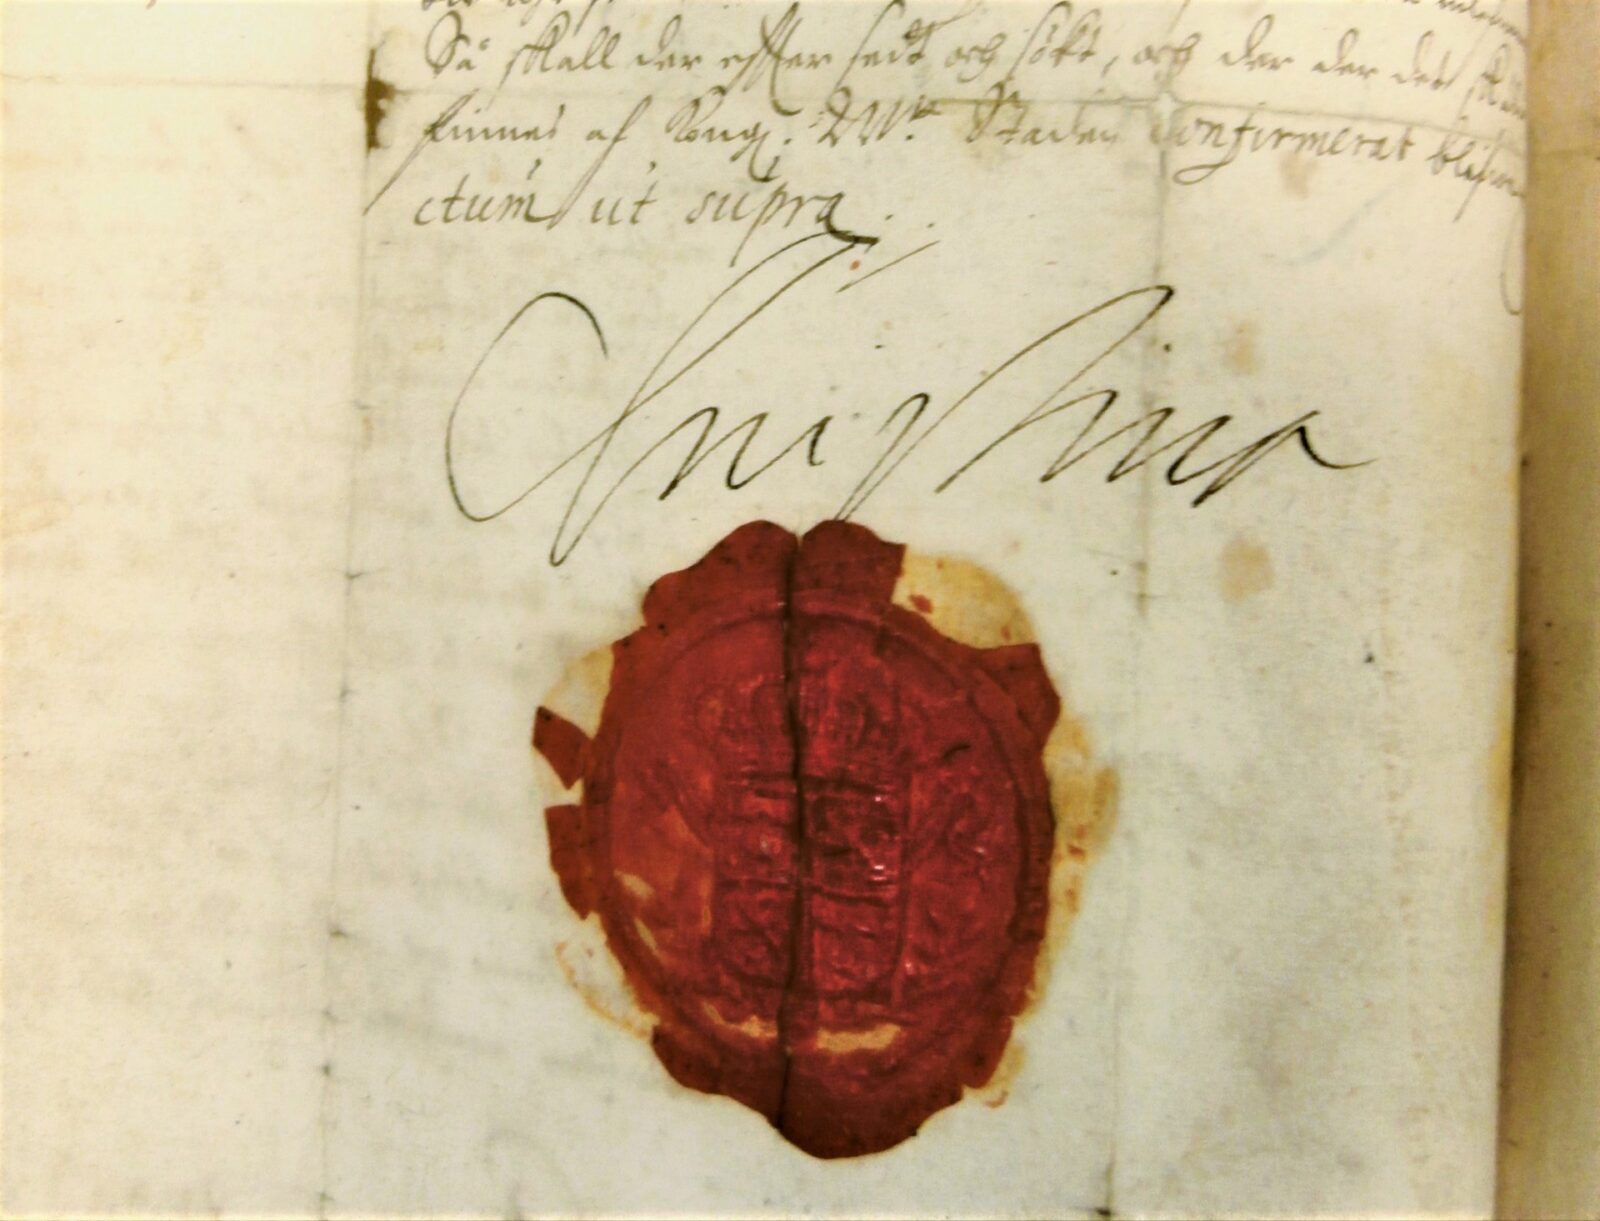 Så skall der effter sedt och sökt, och der der det
finnes af Kongl. M:tt Staden Confirmerat
ctum ut supra.
Christina